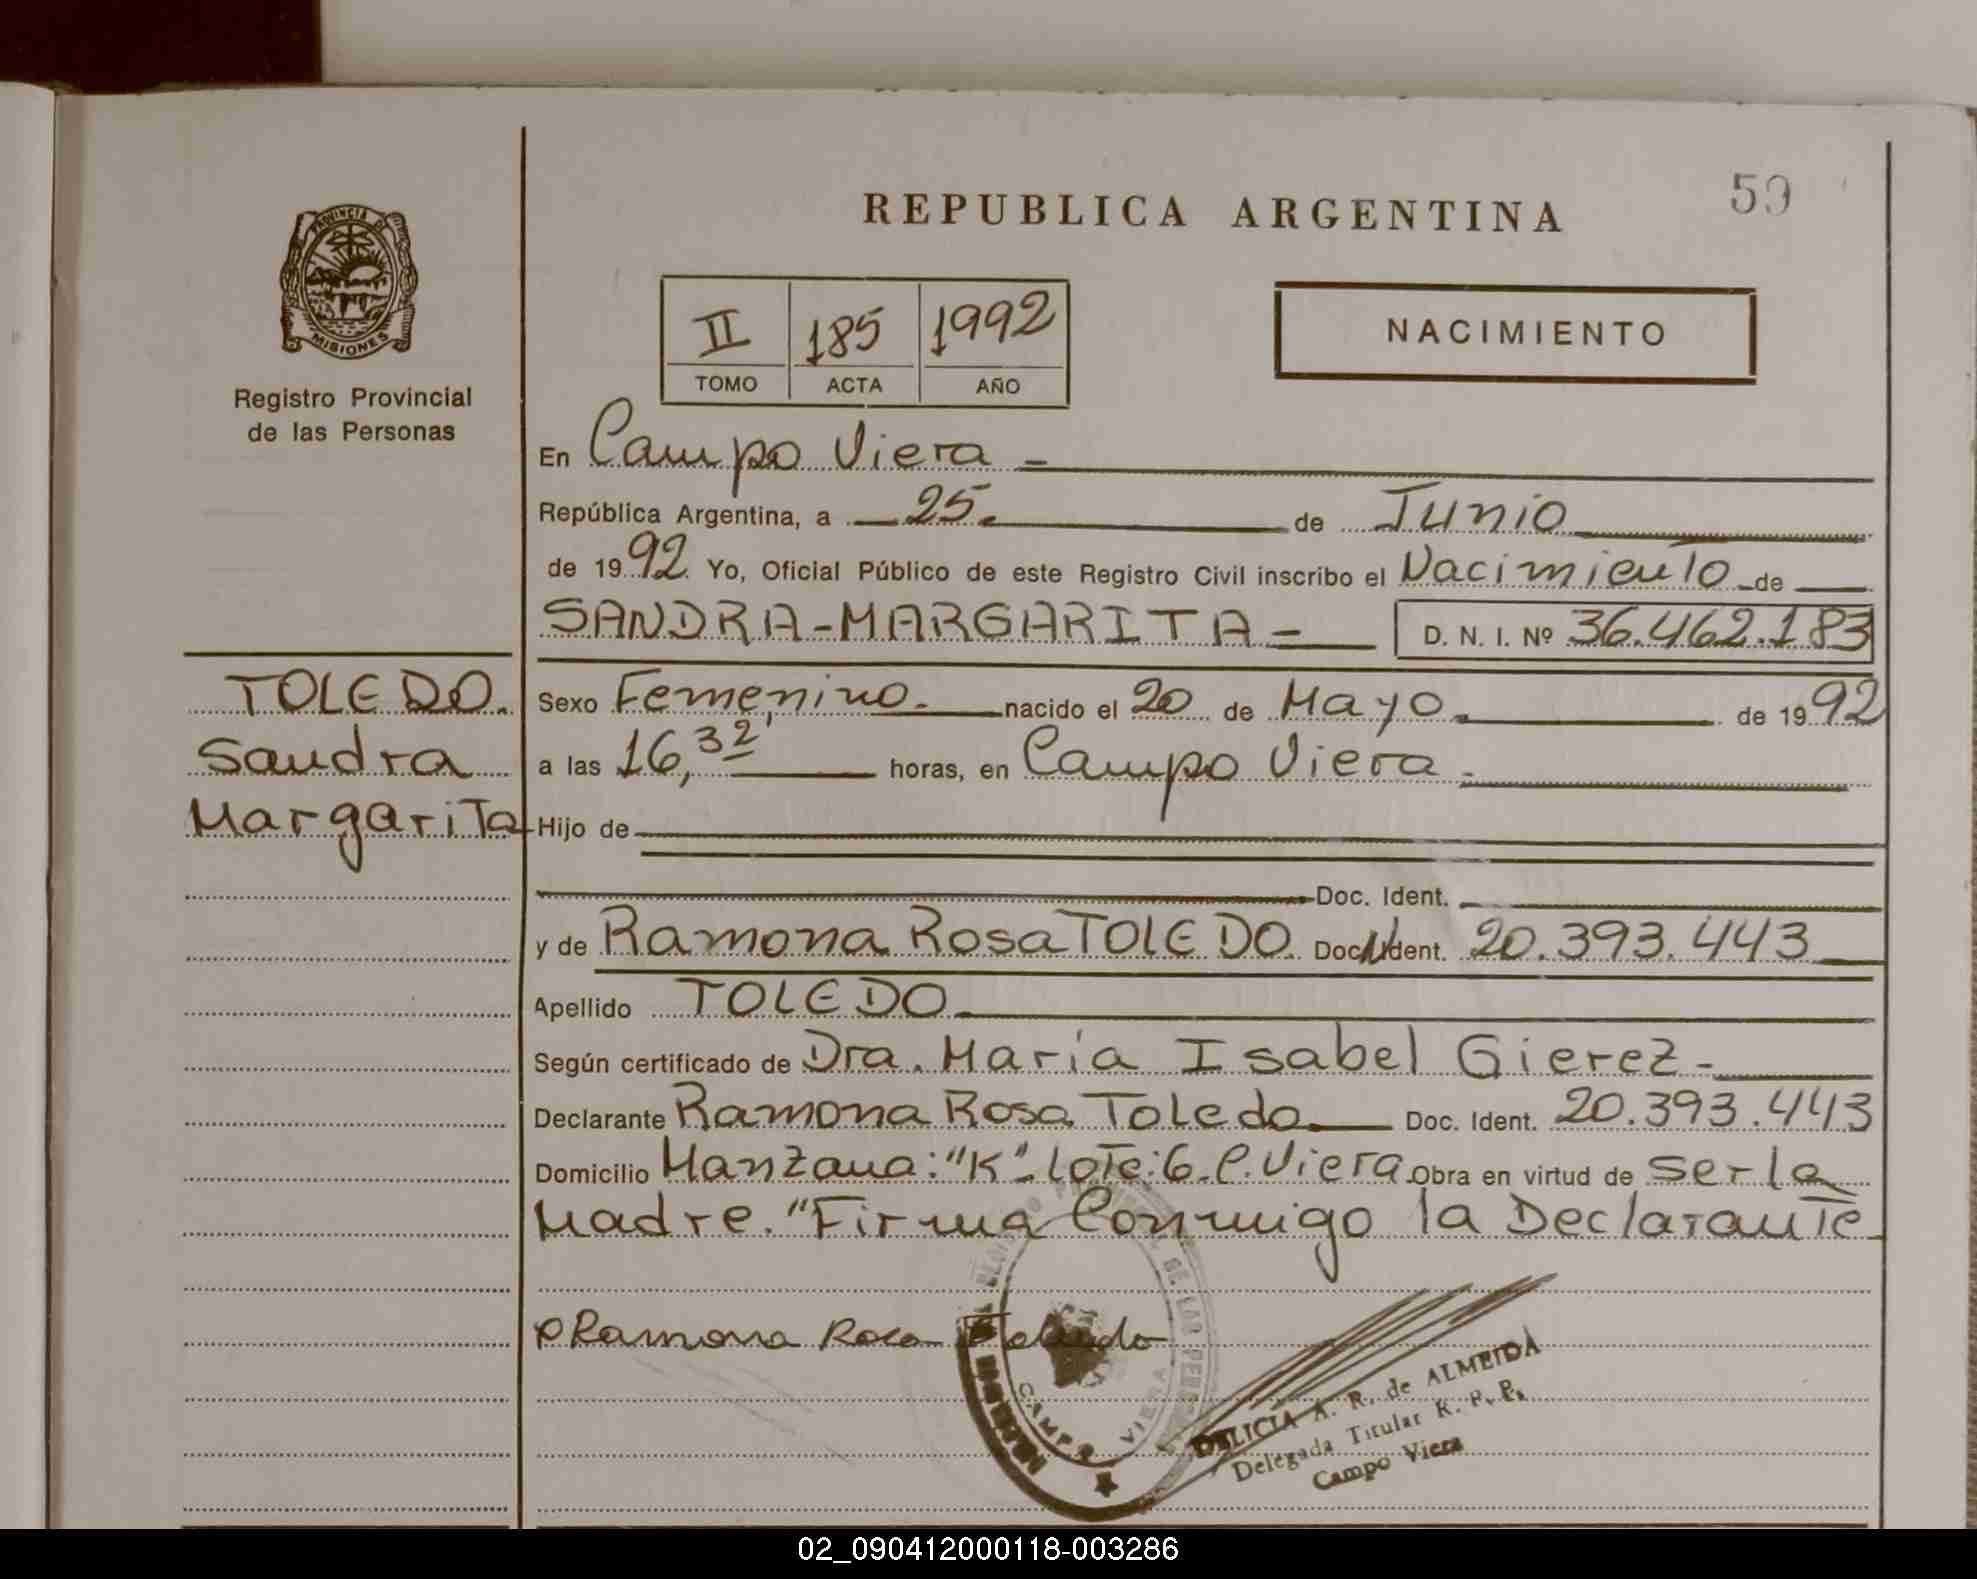 59
REPUBLICA ARGENTINA
PROVINCIA DE
MISIONES
Registro Provincial
de las Personas
II 185 1992
TOMO ACTA AÑO
NACIMIENTO
En Campo Viera -
República Argentina, a 25. de Junio
de 1992. Yo, Oficial Público de este Registro Civil inscribo el Nacimiento de
SANDRA-MARGARITA= D. N. I. Nº 36.462.183
TOLEDO.
Sandra
Margarita
Sexo Femenino. nacido el 20 de Mayo de 1992
a las 16,32 horas, en Campo Viera.
Hijo de
Doc. Ident.
y de Ramona Rosa TOLEDO. Doc. Ident. 20.393.443
Apellido TOLEDO
Según certificado de Dra. María Isabel Gierez-
Declarante Ramona Rosa Toledo Doc. Ident. 20.393.443
Domicilio Manzana: "K". Lote: 6. C. Viera Obra en virtud de ser la
Madre. "Firma Conmigo la Declarante
Ramona Rosa Toledo
CAMPO VIERA
DELICIA A. R. de ALMEIDA
Delegada Titular R. P. P.
Campo Viera
02_090412000118-003286